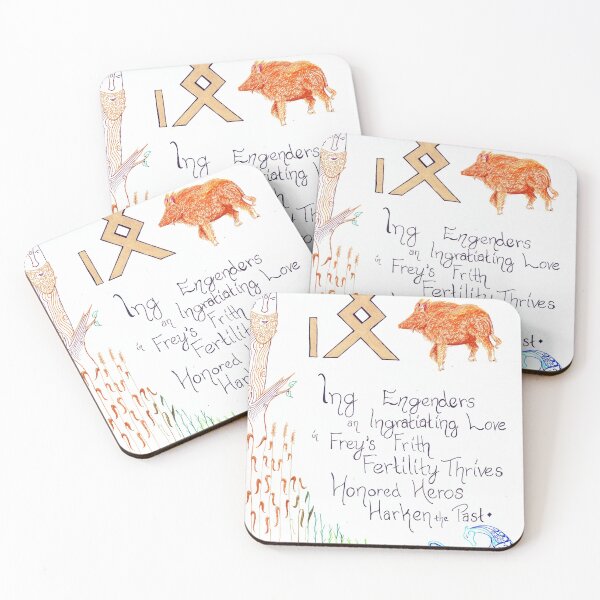 Ing Engenders
Ing Engenders
an Ingratiating Love
in Frey's Frith
Fertility Thrives
Past.
Ing Engenders
an Ingratiating Love
in Frey's Frith
Fertility
Honored
Harken
Ing Engenders
an Ingratiating Love
in Frey's Frith
Fertility Thrives
Honored Heros
Harken the Past.